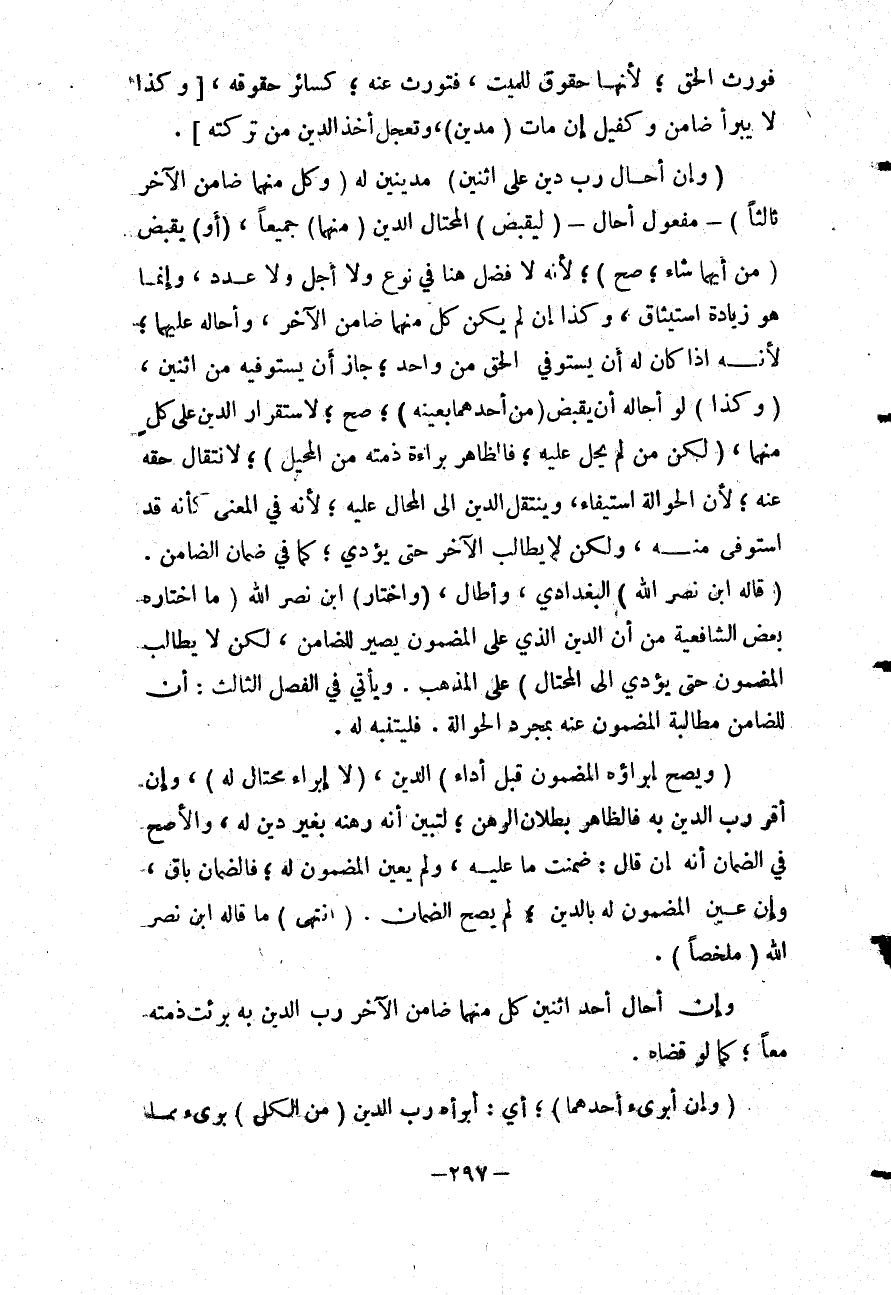 فورث الحق ؛ لأنهــا حقوق للميت ، فتورث عنه ؛ كسائر حقوقه ، [ وكذا
لا يبرأ ضامن وكفيل إن مات ( مدين)،وتعجل أخذ الدين من تركته ] .
( وإن أحــال رب دين على اثنين) مدينين له ( وكل منهما ضامن الآخر
ثالثاً ) – مفعول أحال – ( ليقبض ) المحتال الدين ( منهما) جميعاً ، (أو) يقبض
( من أيهما شاء ؛ صح ) ؛ لأنه لا فضل هنا في نوع ولا أجل ولا عــدد ، وإنمــا
هو زيادة استيثاق ، وكذا إن لم يكن كل منهما ضامن الآخر ، وأحاله عليهما ؛
لأنــــه اذا كان له أن يستوفي الحق من واحد ؛ جاز أن يستوفيه من اثنين ،
( وكذا ) لو أحاله أن يقبض (من أحدهما بعينه ) ؛ صح ؛ لاستقرار الدين على كل
منهما ، ( لكن من لم يحل عليه ؛ فالظاهر براءة ذمته من المحيل ) ؛ لانتقال حقه
عنه ؛ لأن الحوالة استيفاء، وينتقل الدين الى المحال عليه ؛ لأنه في المعنى كأنه قد
استوفى منــــه ، ولكن لا يطالب الآخر حتى يؤدي ؛ كما في ضمان الضامن .
( قاله ابن نصر الله ) البغدادي ، وأطال ، (واختار) ابن نصر الله ( ما اختاره
بعض الشافعية من أن الدين الذي على المضمون يصير للضامن ، لكن لا يطالب
المضمون حتى يؤدي الى المحتال ) على المذهب . ويأتي في الفصل الثالث : أن
للضامن مطالبة المضمون عنه بمجرد الحوالة . فليتنبه له .
( ويصح إبراؤه المضمون قبل أداء ) الدين ، ( لا إبراء محتال له ) ، وإن
أقر رب الدين به فالظاهر بطلان الرهن ؛ لتبين أنه رهنه بغير دين له ، والأصح
في الضمان أنه ان قال : ضمنت ما عليــه ، ولم يعين المضمون له ؛ فالضمان باق ،
وإن عــين المضمون له بالدين ؛ لم يصح الضمان . ( انتهى ) ما قاله ابن نصر
الله ( ملخصاً ) .
وإن أحال أحد اثنين كل منهما ضامن الآخر رب الدين به برئت ذمته
معاً ؛ كما لو قضاه .
( وإن أبرىء أحدهما ) ؛ أي : أبرأه رب الدين ( من الكل ) برىء بمــا
–٢٩٧–